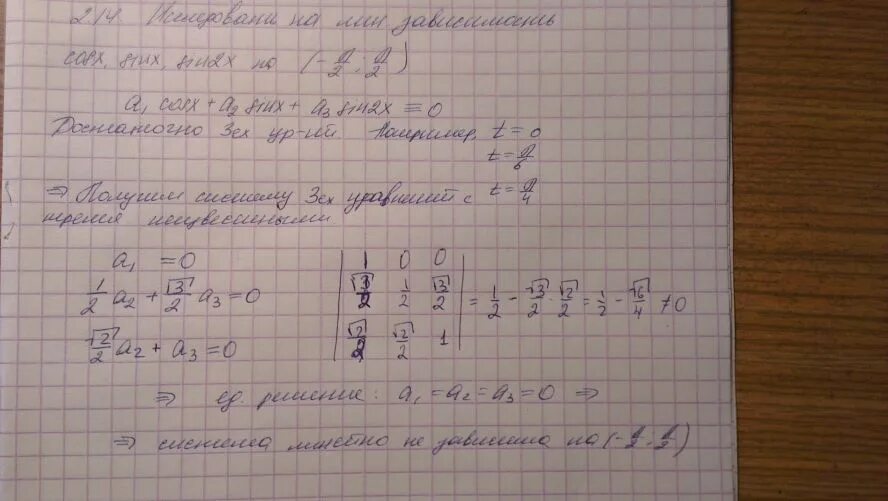 2.14. Исследовать на лин зависимость
cosx, sinx, sin2x на (-π/2; π/2)
a₁ cosx + a₂ sinx + a₃ sin2x ≡ 0
Достаточно 3ех ур-ий. Например, t = 0
t = π/6
t = π/4
⇒ Получим систему 3ех уравнений с
тремя неизвестными
a₁ = 0
1/2 a₂ + √3/2 a₃ = 0
√2/2 a₂ + a₃ = 0
| 1 0 0 |
| √3/2 1/2 √3/2 | = 1/2 - √3/2 · √2/2 = 1/2 - √6/4 ≠ 0
| √2/2 √2/2 1 |
⇒ ед. решение: a₁ = a₂ = a₃ = 0 ⇒
⇒ система линейно не зависима на (-π/2; π/2)